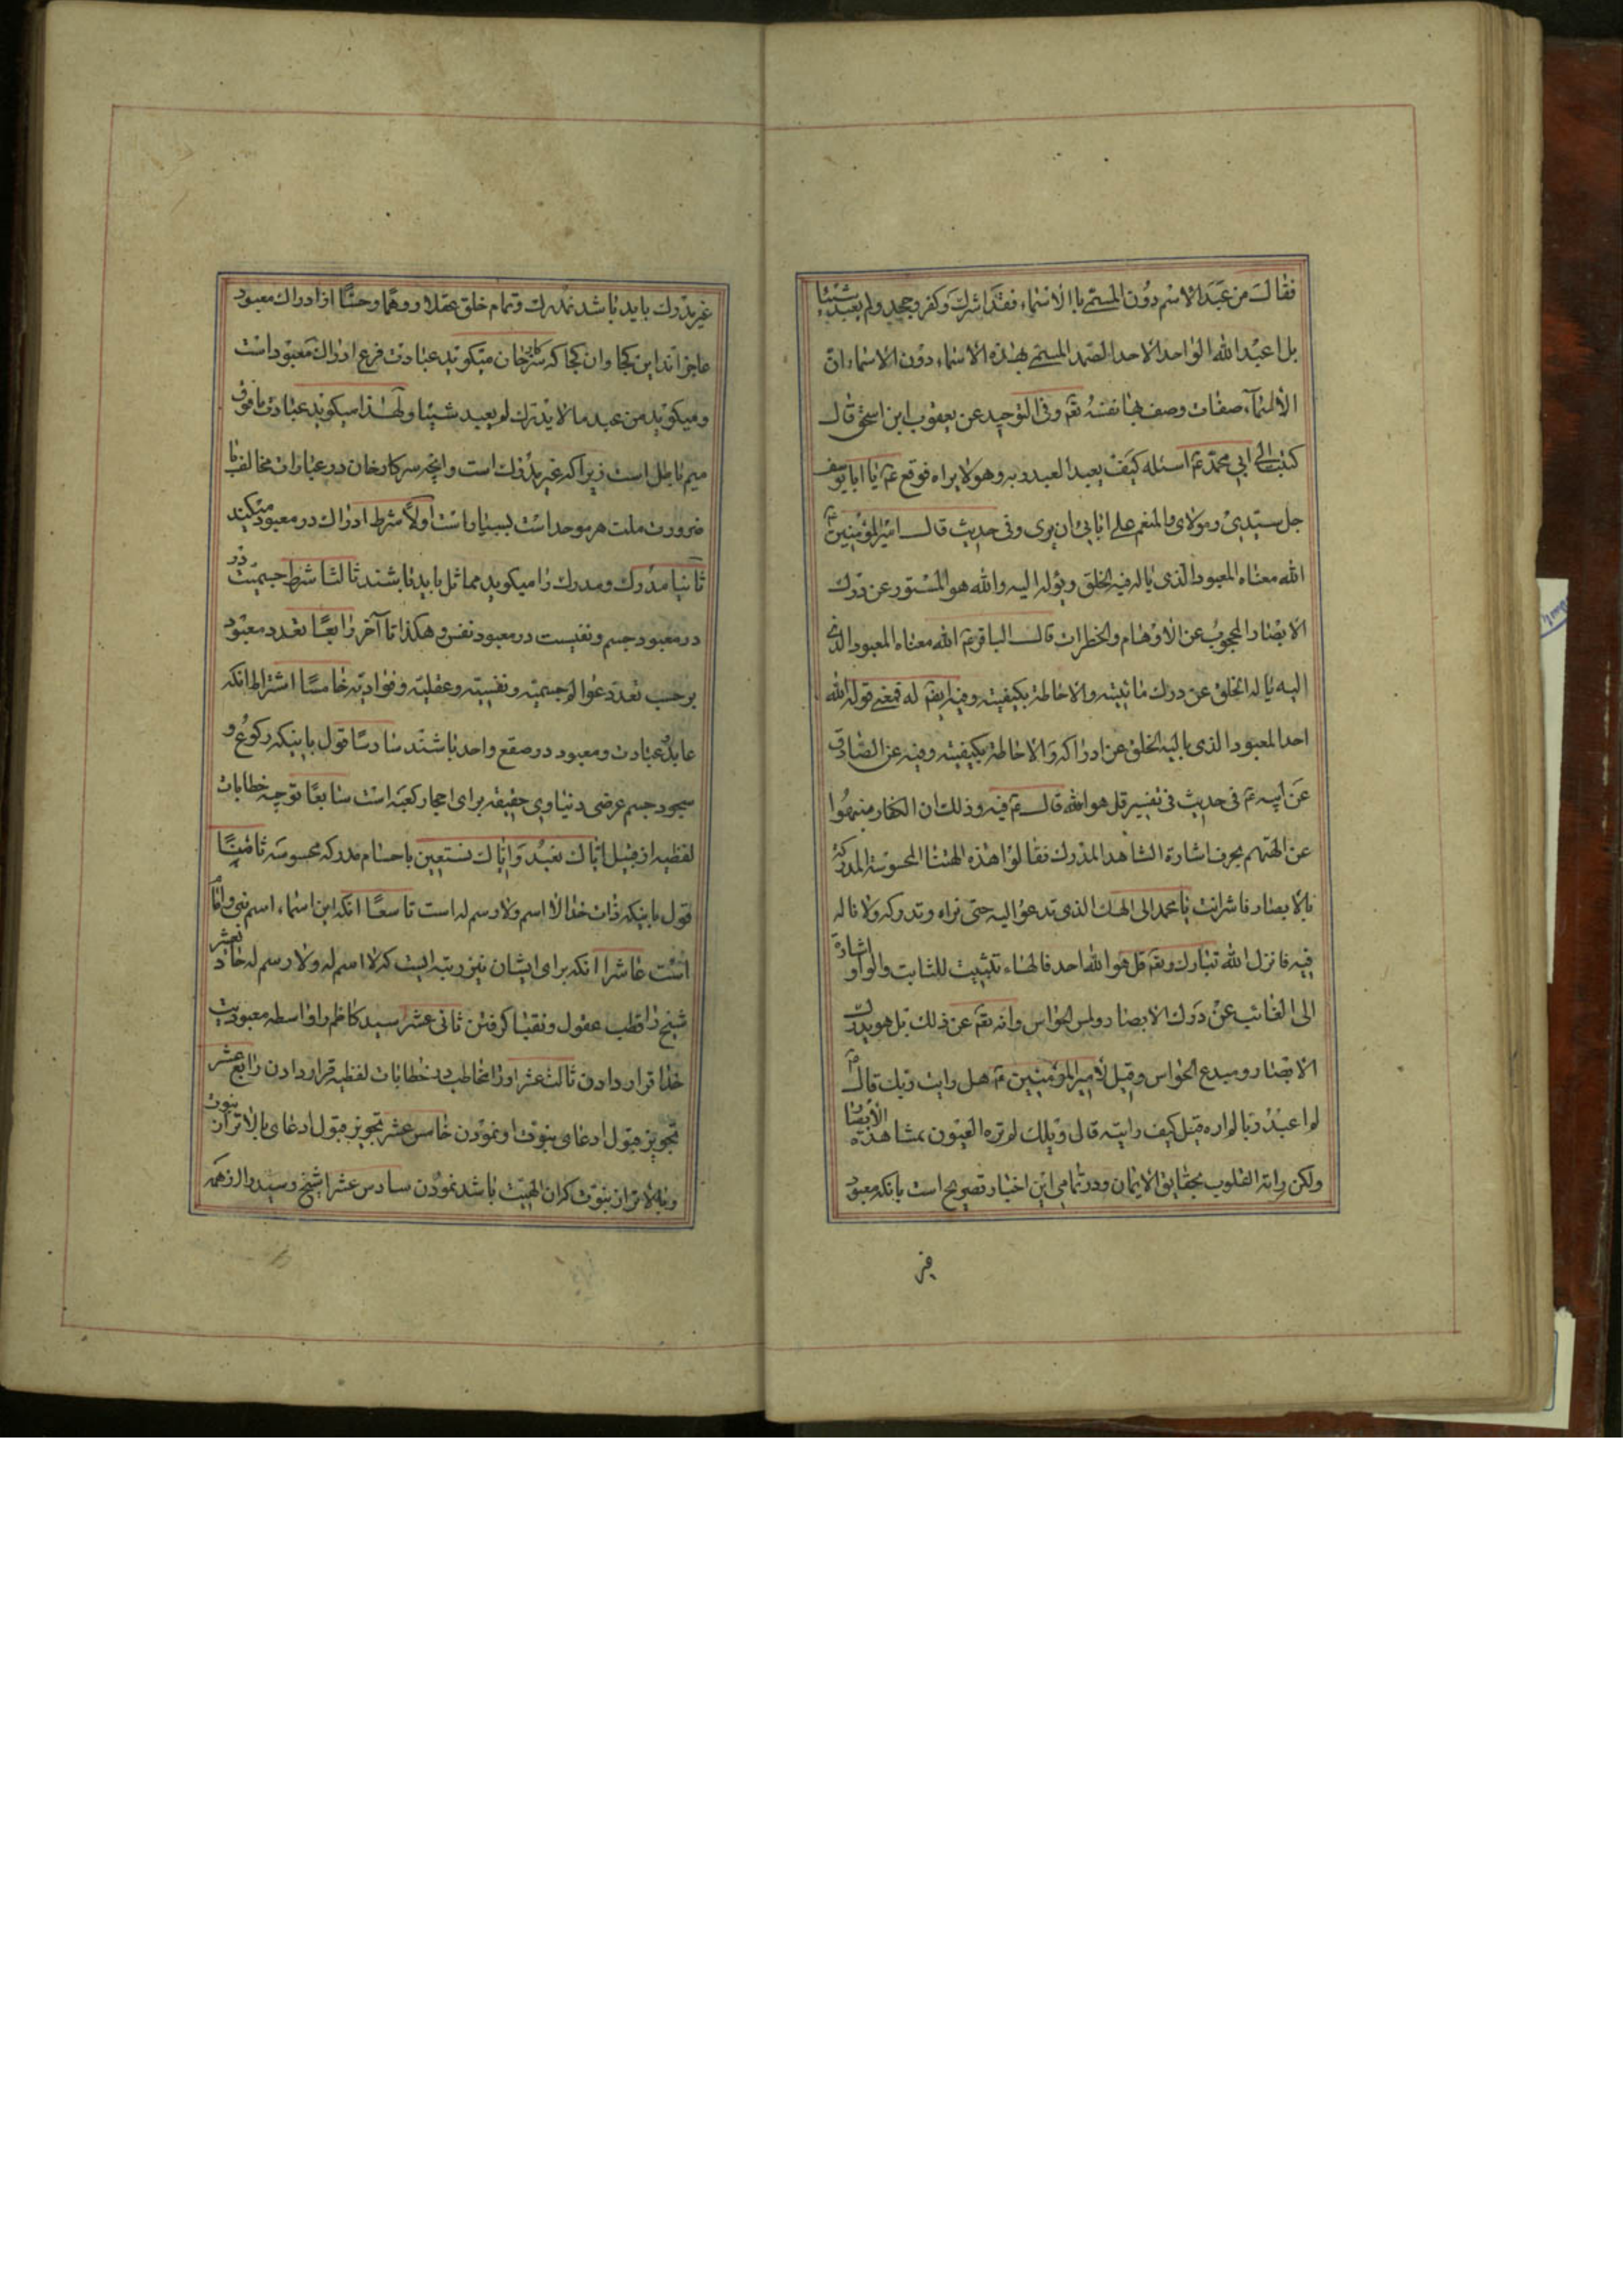 فقال من عبد الاسم دون المسمى باالاسماء فقد اشرك وكفر وجحد ولم يعبد شيئا
بل اعبد الله الواحد الاحد الصمد المسمى بهذه الاسماء دون الاسماء ان
الاسماء صفات وصف بها نفسه تعم وفى التوحيد عن يعقوب ابن اسحق قال
كتبت الى ابي محمد ع اسئله كيف يعبد العبد ربه وهو لا يراه فوقع ع يا ابا يوسف
جل سيدي ومولاى والمنعم على ابائى ان يرى وفى حديث قال امير المؤمنين ع
الله معناه المعبود الذى ياله فيه الخلق ويؤله اليه والله هو المستور عن درك
الابصار المحجوب عن الاوهام والخطرات قال الباقر ع الله معناه المعبود الذى
اليه ياله الخلق عن درك مائيته والاحاطة بكيفيته وفيه ايضم له فمعنى قوله الله
احد المعبود الذى ياليه الخلق عن ادراكه والاحاطة بكيفيته وفيه عن الصادق
عن ابيه ع فى حديث فى تفسير قل هو الله قال ع فيه وذلك ان الكفار منهموا
عن الهتهم بحرف اشارة الشاهد المدرك فقالوا هذه الهتنا المحسوسة المدركة
بالابصار فاشر انت يا محمد الى الهك الذى تدعو اليه حتى نراه وندركه ولا ناله
فيه فانزل الله تبارك وتعم قل هو الله احد فالهاء تثبيت للثابت والواو اشارة
الى الغائب عن درك الابصار ولمس الحواس وانه تعم عن ذلك بل هو يدرك
الابصار ومبدع الحواس وقيل لامير المؤمنين ع هل رايت ربك قال ع
لم اعبد ربا لم اره قيل كيف رايته قال ويلك لم تره العيون بمشاهدة الابصار
ولكن راته القلوب بحقايق الايمان ودر تمامى اين اخبار تصريح است بانكه معبود
غير
غير مدرك بايد باشد نه مدرك وتمام خلق عقلا ووهما وحسا از ادراك معبود
عاجزاند اين كجا وان كجا كه سركار خان ميكويد عبادت فرع ادراك معبود است
وميكويد من عبد ما لا يدرك لم يعبد شيئا ولهذا ميكويد عبادت مافوق
ميم باطل است زيرا كه غير مدرك است وانچه سركار خان در عبارات مخالف با
ضرورت ملت هر موحد است بسيار است اولا شرط ادراك در معبود ميكند
ثانيا مدرك ومدرك را ميكويد مماثل بايد باشند ثالثا شرط جسميت در
در معبود جسم ونفسيت در معبود نفس وهكذا تا آخر رابعا تعدد معبود
بر حسب تعدد عوالم جسميه ونفسيه وعقليه وفؤاديه خامسا اشتراط انكه
عابد وعبادت ومعبود در صقع واحد باشند سادسا قول باينكه ركوع و
سجود جسم عرضى دنياوى حقيقه براى احجار كعبه است سابعا توجه خطابات
لفظيه از قبيل اياك نعبد واياك نستعين باجسام مدركه محسوسه ثامنا
قول باينكه ذات خدا لا اسم ولا رسم له است تاسعا انكه اين اسماء اسم نبى وامام
است عاشرا انكه براى ايشان نيز رتبه ايست كه لا اسم له ولا رسم له حاد يعشر
شيخ را قطب عقول ونقبا كرفتن ثانى عشر سيد كاظم را واسطه معبوديت
خدا قرار دادن ثالث عشر او را مخاطب در خطابات لفظيه قرار دادن رابع عشر
تجويز قبول ادعاى نبوت او نمودن خامس عشر تجويز قبول ادعاى بالاتر از نبوت
وبالاتر از نبوت كه ان الهيت باشد نمودن سادس عشر شيخ وسيد را از همه